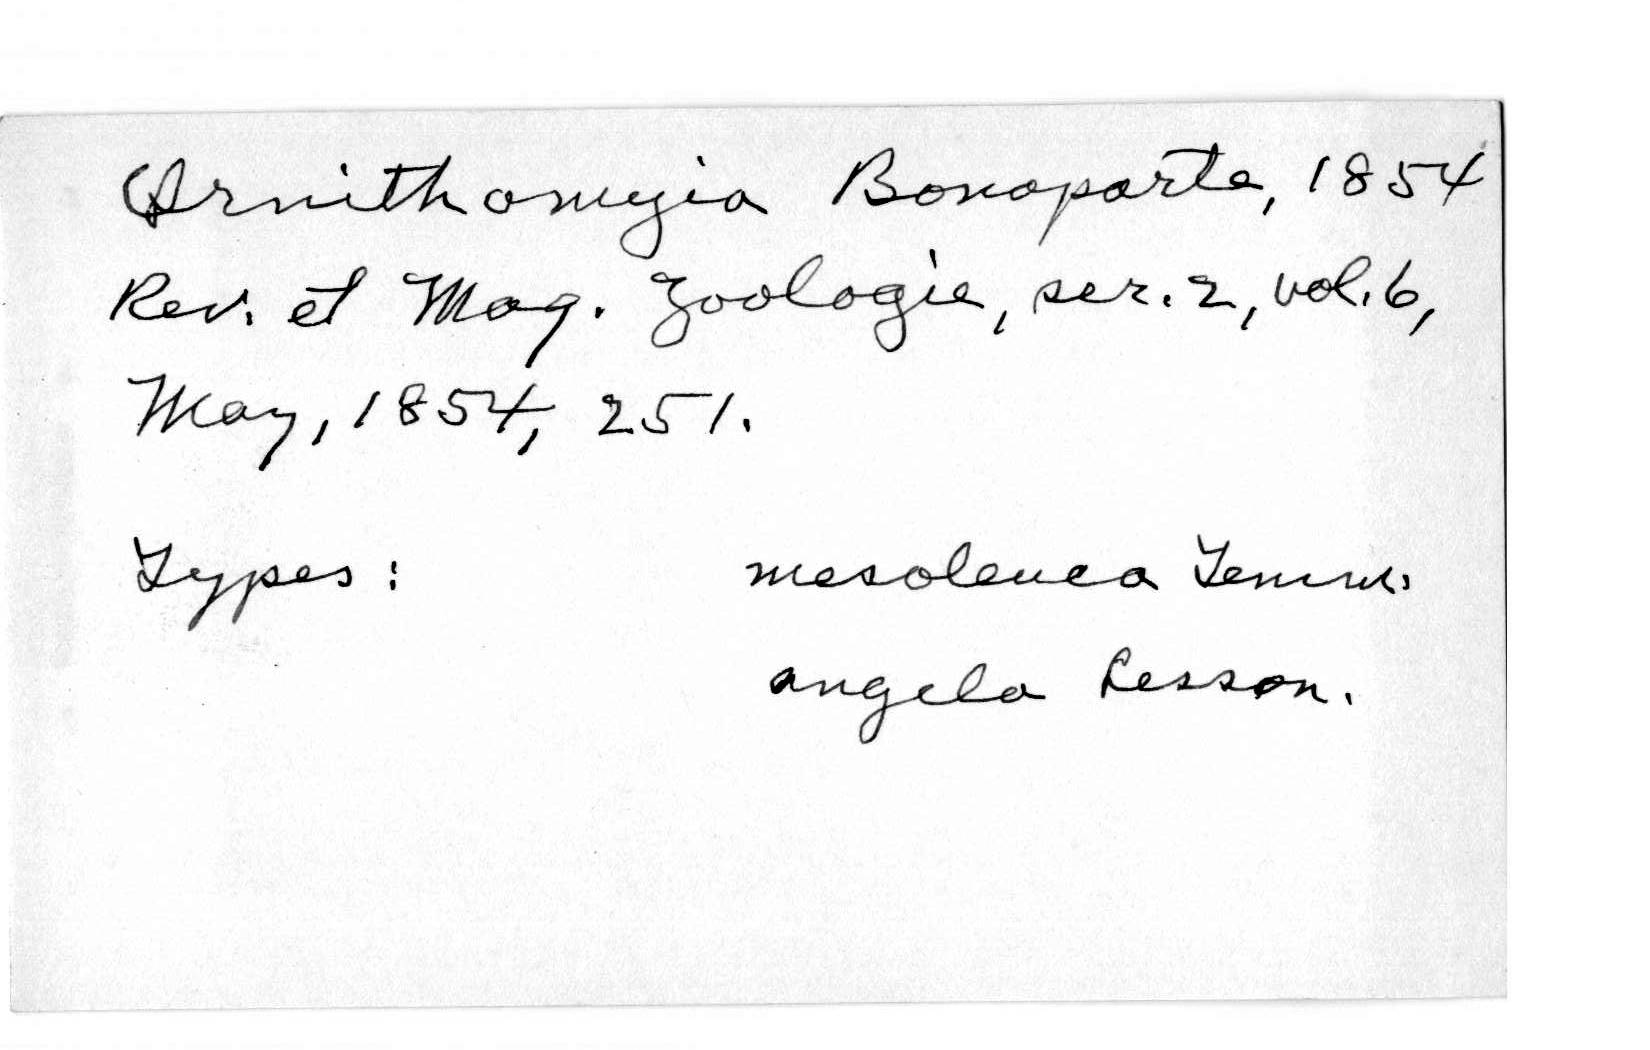 Ornithomyia Bonaparte, 1854
Rev. et Mag. Zoologie, ser. 2, vol. 6,
May, 1854, 251.
Types: mesoleuca Temm.
angela Lesson.